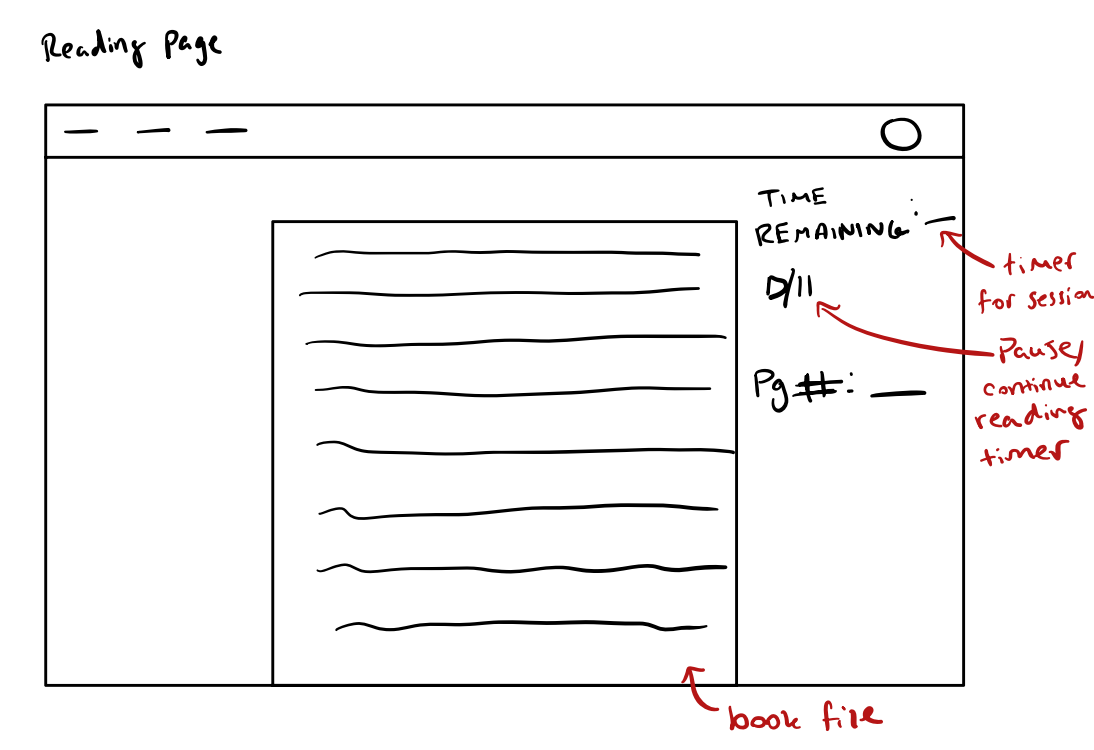 Reading Page
TIME
REMAINING:
timer
for session
D/11
Pause/
continue
reading
timer
Pg #:
book file